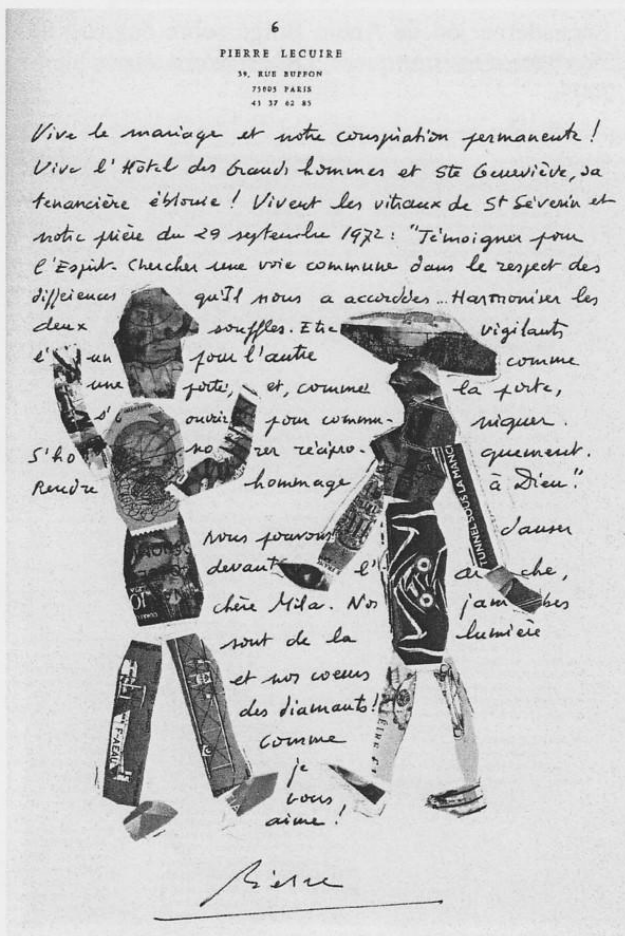 6
PIERRE LECUIRE
39, RUE BUFFON
75005 PARIS
43 37 62 85
Vive le mariage et notre conspiration permanente !
Vive l'Hôtel des Grands hommes et Ste Geneviève, sa
tenancière éblouie ! Vivent les vitraux de St Séverin et
notre prière du 29 septembre 1972 : "Témoigner pour
l'Esprit. Chercher une voie commune dans le respect des
différences qu'Il nous a accordées ... Harmoniser les
deux souffles. Etre vigilants
l'un pour l'autre comme
une porte, et, comme la porte,
s'ouvrir pour commu- niquer.
S'honorer récipro- quement.
Rendre hommage à Dieu."
Nous pouvons danser
devant l'arche,
chère Mila. Nos jambes
sont de la lumière
et nos coeurs
des diamants !
comme
je
vous
aime !
Pierre
TUNNEL SOUS LA MANC